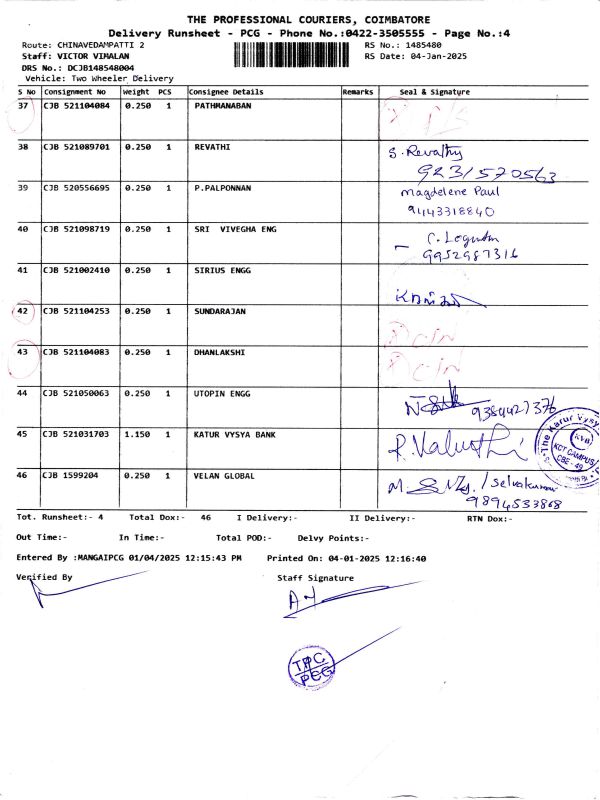 THE PROFESSIONAL COURIERS, COIMBATORE
Delivery Runsheet - PCG - Phone No.:0422-3505555 - Page No.:4
Route: CHINAVEDAMPATTI 2 RS No.: 1485480
Staff: VICTOR VIMALAN RS Date: 04-Jan-2025
DRS No.: DCJB148548004
Vehicle: Two Wheeler Delivery
S No Consignment No Weight PCS Consignee Details Remarks Seal & Signature
37 CJB 521104084 0.250 1 PATHMANABAN
38 CJB 521089701 0.250 1 REVATHI S. Revathy
9231570563
39 CJB 520556695 0.250 1 P.PALPONNAN Magdelene Paul
9443318840
40 CJB 521098719 0.250 1 SRI VIVEGHA ENG
9952987316
41 CJB 521002410 0.250 1 SIRIUS ENGG
42 CJB 521104253 0.250 1 SUNDARAJAN
43 CJB 521104083 0.250 1 DHANLAKSHI
44 CJB 521050063 0.250 1 UTOPIN ENGG 9384427376
45 CJB 521031703 1.150 1 KATUR VYSYA BANK
The Karur Vysya
KVB
KCT CAMPUS
CBE - 49
46 CJB 1599204 0.250 1 VELAN GLOBAL / Selvakumar
9894533868
Tot. Runsheet:- 4 Total Dox:- 46 I Delivery:- II Delivery:- RTN Dox:-
Out Time:- In Time:- Total POD:- Delvy Points:-
Entered By :MANGAIPCG 01/04/2025 12:15:43 PM Printed On: 04-01-2025 12:16:40
Verified By Staff Signature
TPC
PCG